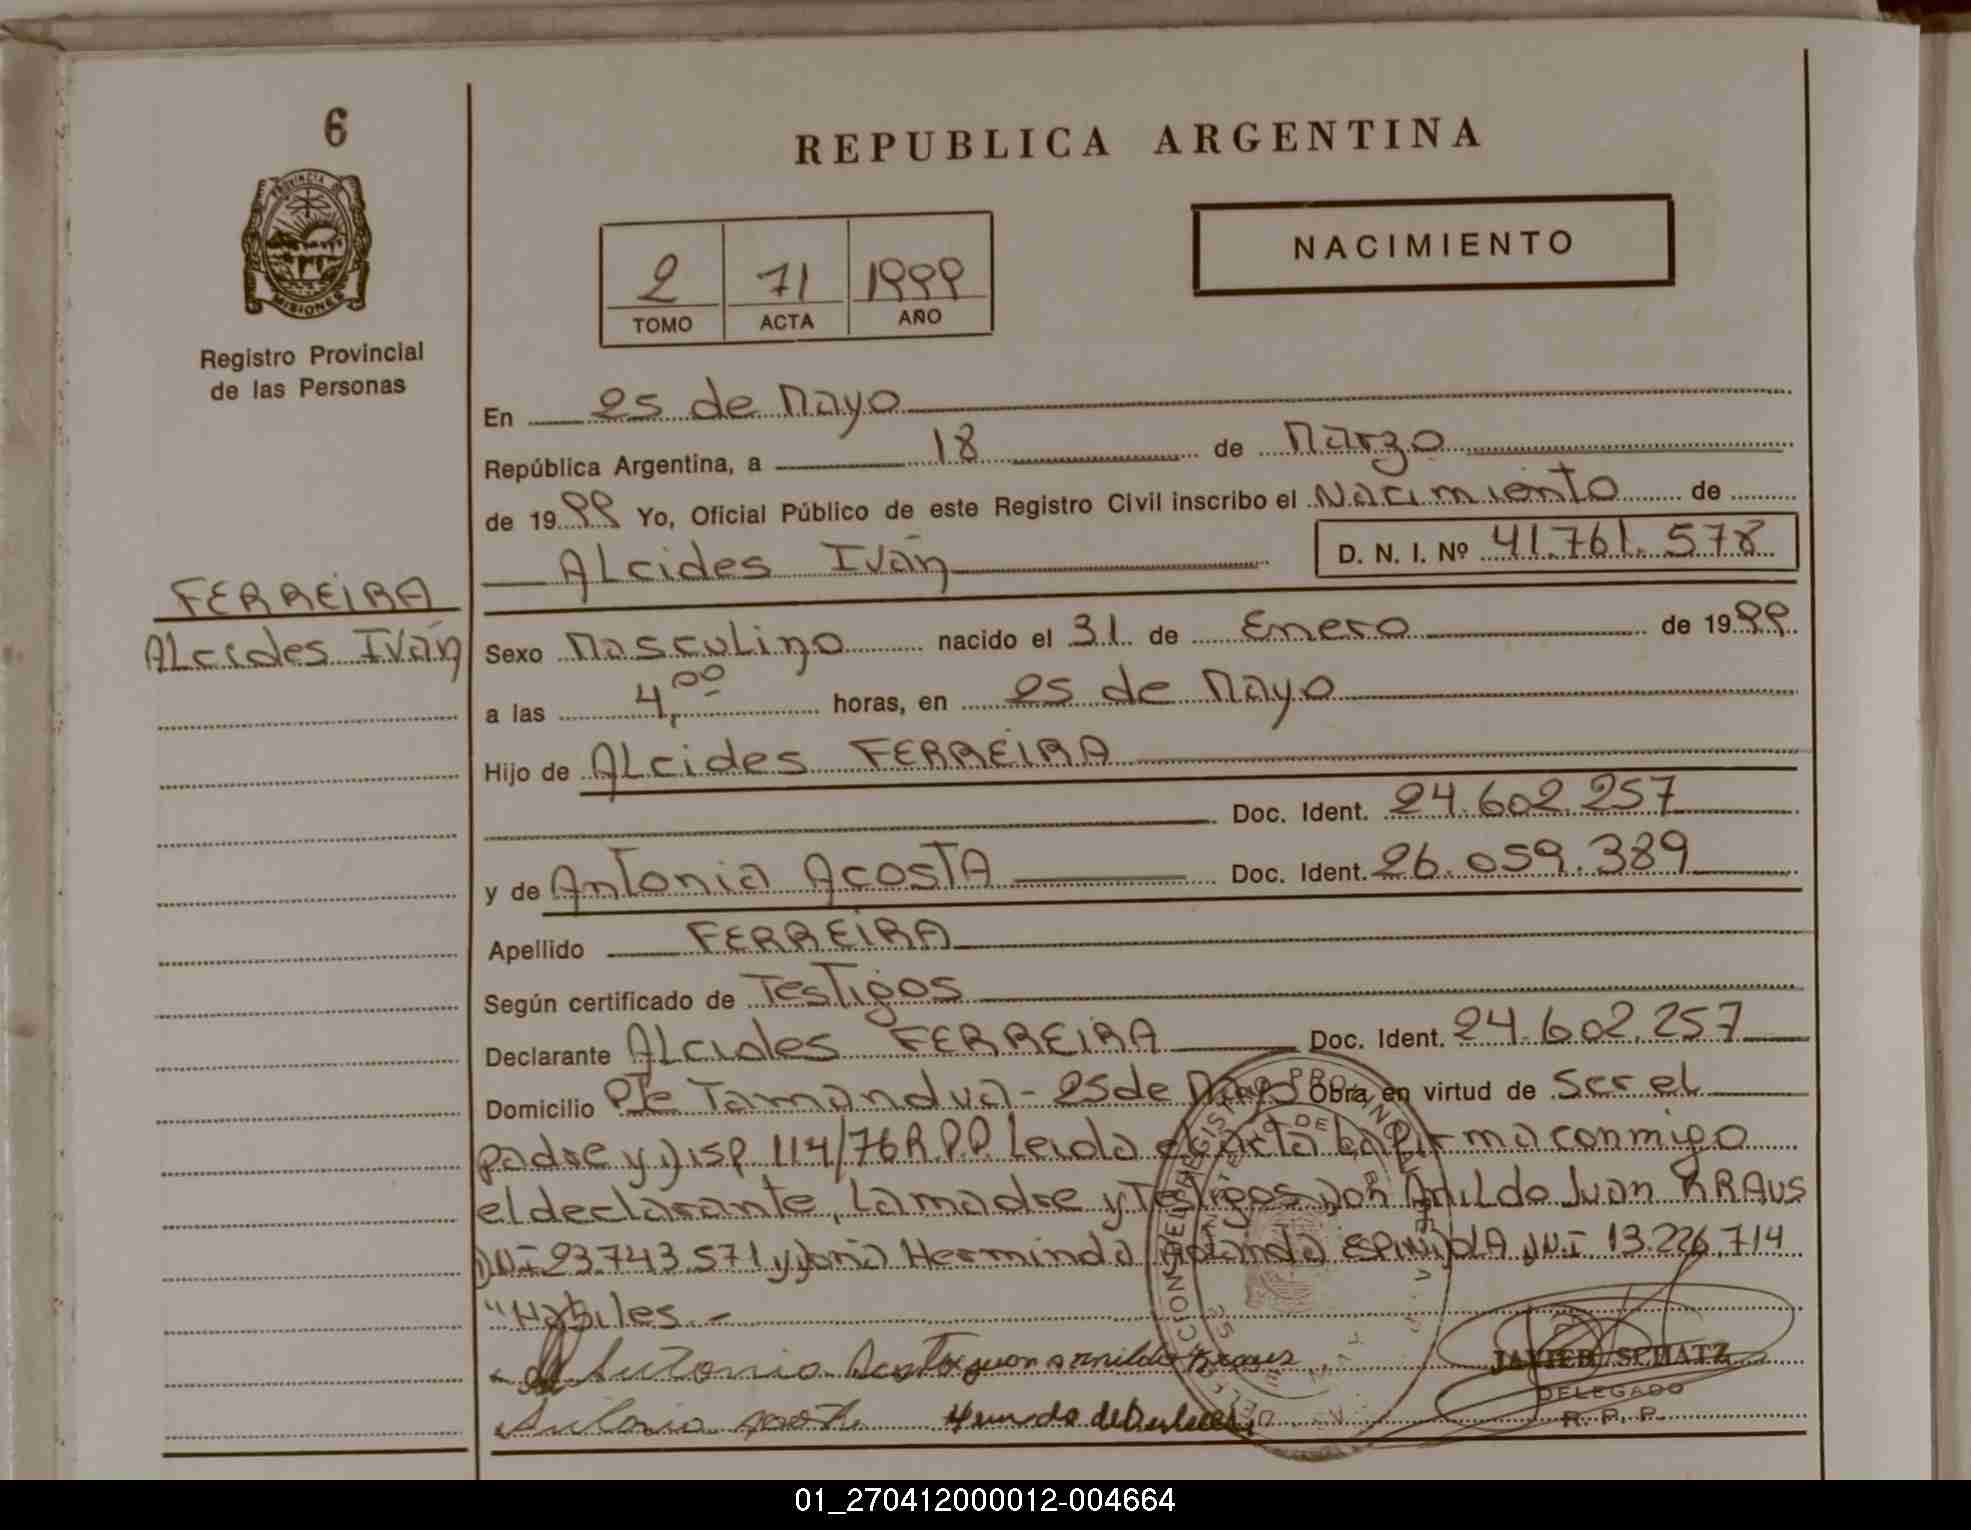 6
PROVINCIA DE
MISIONES
Registro Provincial
de las Personas
FERREIRA
Alcides Iván
REPUBLICA ARGENTINA
NACIMIENTO
2 71 1999
TOMO ACTA AÑO
En 25 de Mayo
República Argentina, a 18 de Marzo
de 1999 Yo, Oficial Público de este Registro Civil inscribo el Nacimiento de
Alcides Iván D. N. I. Nº 41.761.578
Sexo Masculino nacido el 31 de Enero de 1999
a las 4,00 horas, en 25 de Mayo
Hijo de Alcides FERREIRA
Doc. Ident. 24.602.257
y de Antonia Acosta Doc. Ident. 26.059.389
Apellido FERREIRA
Según certificado de Testigos
Declarante Alcides FERREIRA Doc. Ident. 24.602.257
Domicilio Pje Tamandua - 25 de Mayo Obra en virtud de Ser el
padre y Disp. 114/76 R.P.P. Leida el acta La firma conmigo
el declarante, La madre y Testigos Don Arnildo Juan KRAUS
DNI 23.743.571 y Doña Herminda ESPINDOLA DNI 13.226.714
"Habiles.-
Antonia Acosta Juan Arnildo Kraus
JAVIER SCHATZ
DELEGADO
R. P. P.
01_270412000012-004664